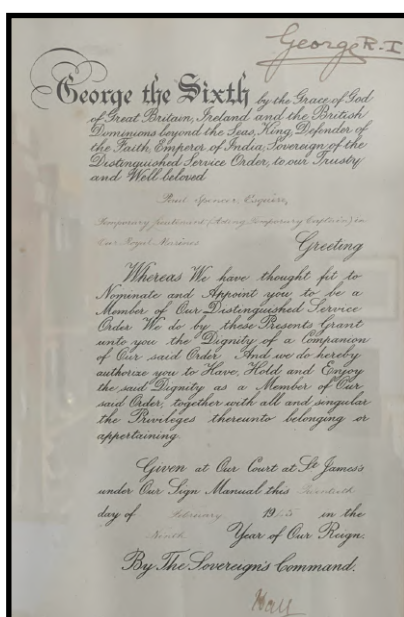 George R.I
George the Sixth by the Grace of God
of Great Britain, Ireland and the British
Dominions beyond the Seas, King, Defender of
the Faith, Emperor of India, Sovereign of the
Distinguished Service Order, to our Trusty
and Well beloved
Paul Spencer Esquire,
Temporary Lieutenant (Acting Temporary Captain) in
Our Royal Marines
Greeting
Whereas We have thought fit to
Nominate and Appoint you to be a
Member of Our Distinguished Service
Order We do by these Presents Grant
unto you the Dignity of a Companion
of Our said Order And we do hereby
authorize you to Have, Hold and Enjoy
the said Dignity as a Member of Our
said Order, together with all and singular
the Privileges thereunto belonging or
appertaining
Given at Our Court at St James's
under Our Sign Manual this Twentieth
day of February 1945 in the
Ninth Year of Our Reign.
By The Sovereign's Command.